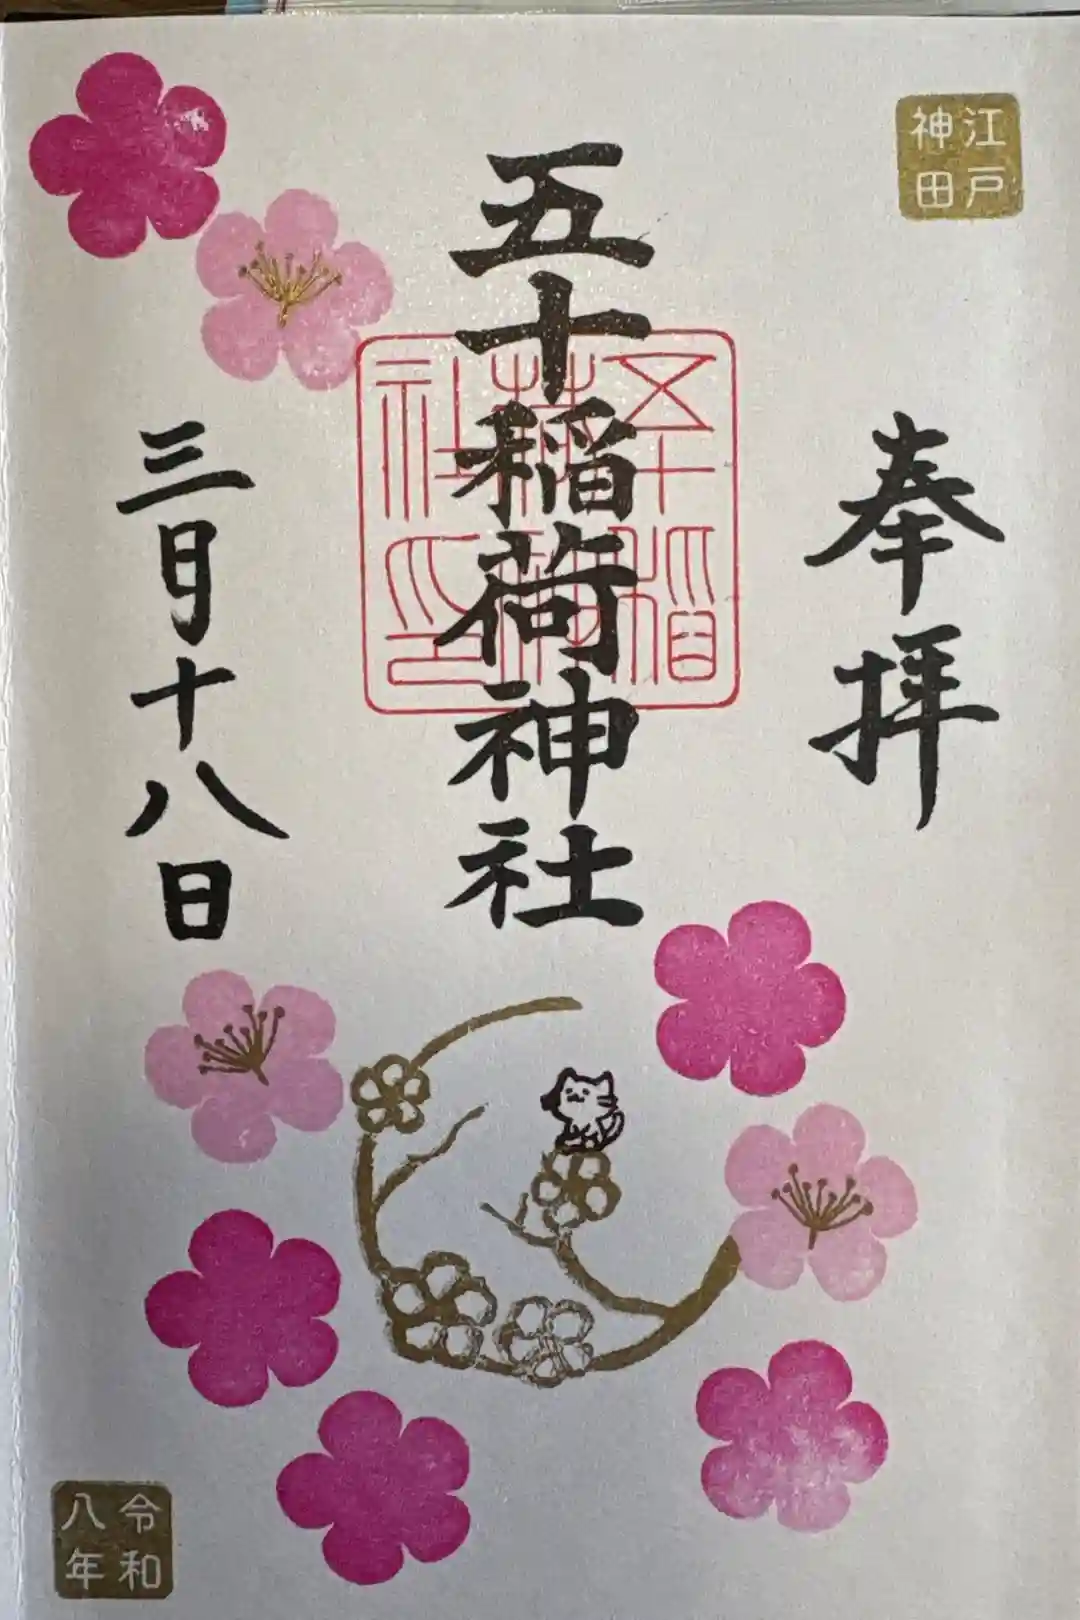 江戸
神田
奉拝
五十稲荷神社
五十稲
荷神
社印
三月十八日
令和
八年